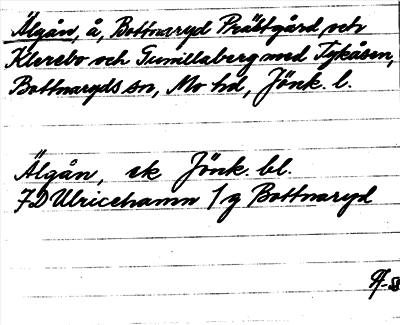 Älgån, å, Bottnaryd Prästgård, och
Klerebo och Gunillaberg med Tykåsen,
Bottnaryds sn, Mo hd, Jönk. l.
Älgån, ek Jönk. bl.
7D Ulricehamn 1 g Bottnaryd